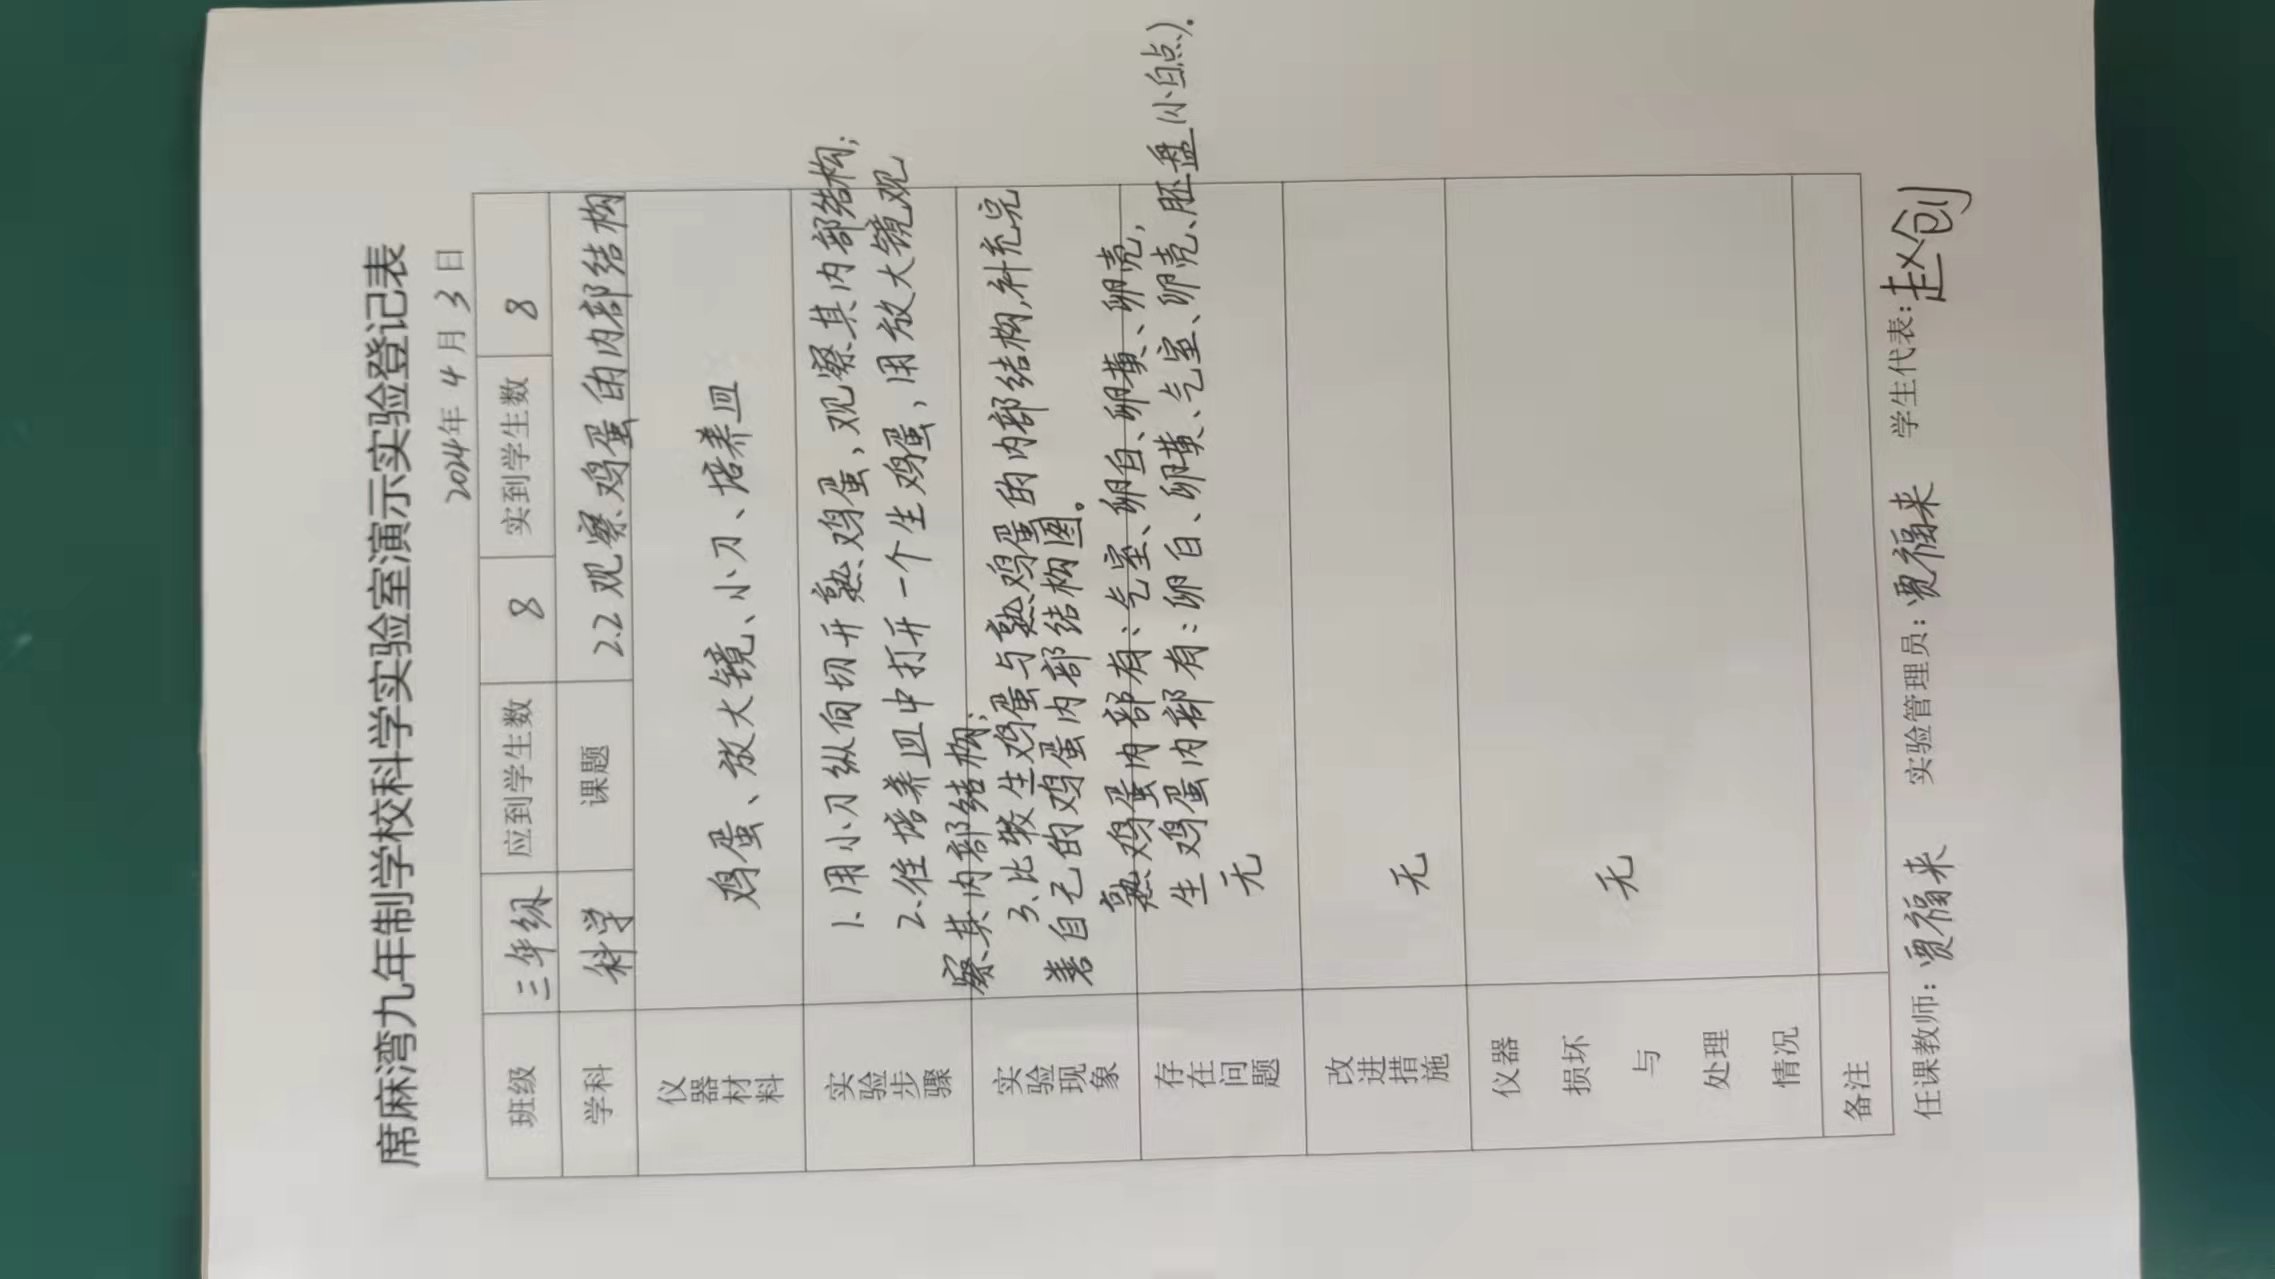 席麻湾九年制学校科学实验室演示实验登记表
2024年 4 月 3 日
班级 三年级 应到学生数 8 实到学生数 8
学科 科学 课题 2.2观察鸡蛋的内部结构
仪器材料 鸡蛋、放大镜、小刀、培养皿
实验步骤 1.用小刀纵向切开熟鸡蛋、观察其内部结构;
2.往培养皿中打开一个生鸡蛋、用放大镜观
察其内部结构;
3、比较生鸡蛋与熟鸡蛋的内部结构,补充完
善自己的鸡蛋内部结构图。
实验现象 熟鸡蛋内部有:气室、卵白、卵黄、卵壳,
生鸡蛋内部有:卵白、卵黄、气室、卵壳、胚盘(小白点).
存在问题 无
改进措施 无
仪器损坏与处理情况 无
备注
任课教师:贾福来 实验管理员:贾福来 学生代表:赵创